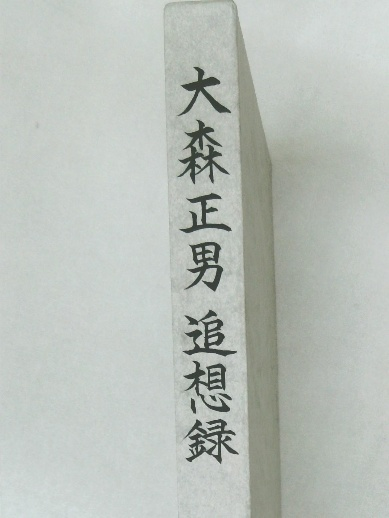 大森正男 追想録